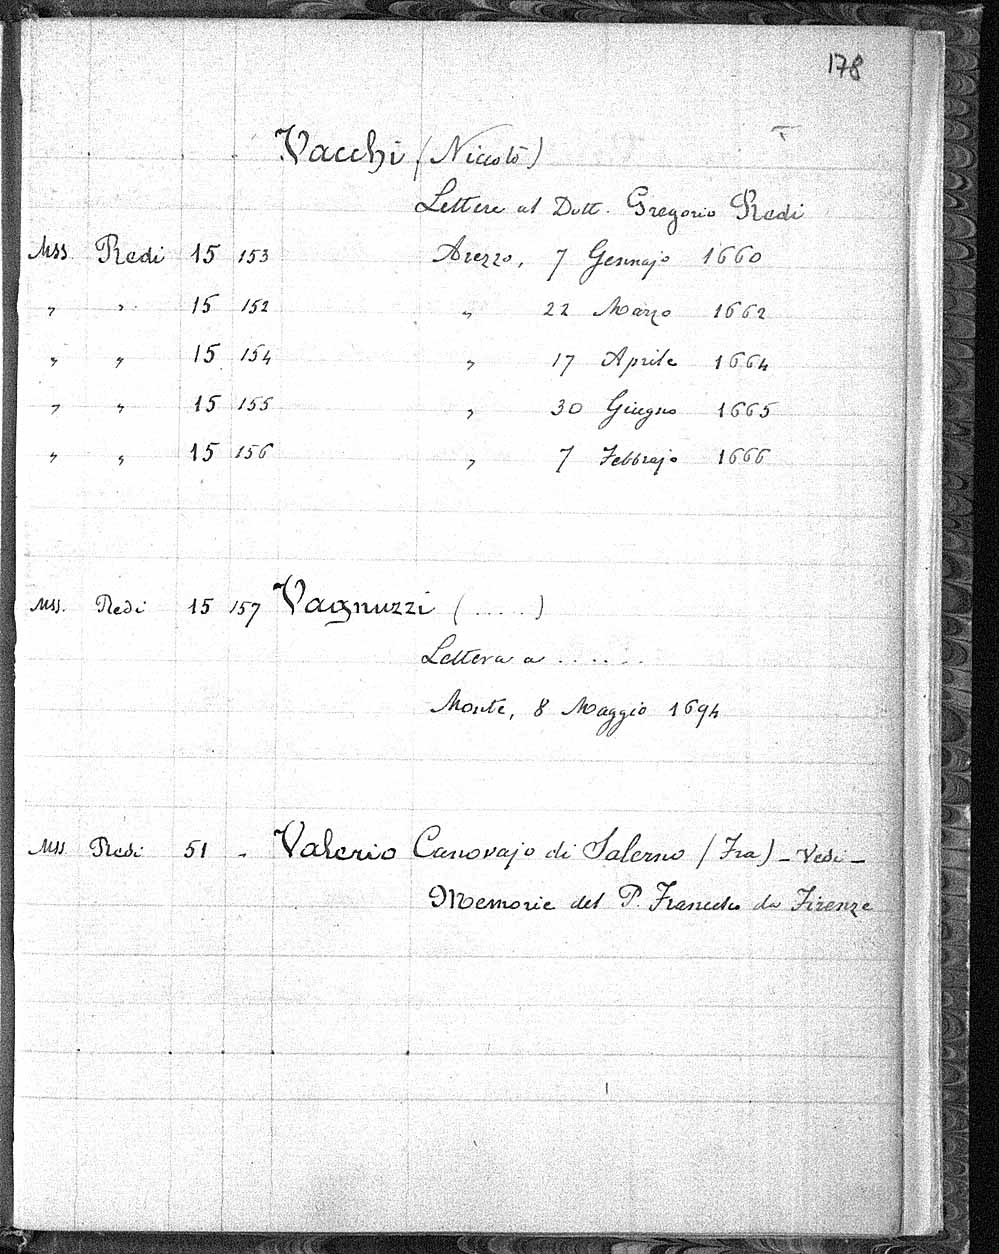 178
Vacchi (Niccolò)
Lettere al Dott. Gregorio Redi
Mss. Redi 15 153 Arezzo, 7 Gennajo 1660
" " 15 152 " 22 Marzo 1662
" " 15 154 " 17 Aprile 1664
" " 15 155 " 30 Giugno 1665
" " 15 156 " 7 Febbrajo 1666
Mss. Redi 15 157 Vagnuzzi (.....)
Lettera a ......
Monte, 8 Maggio 1694
Mss Redi 51 - Valerio Canovajo di Salerno (Fra) - Vedi -
Memorie del P. Francesco da Firenze